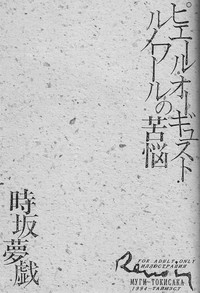 ピエール・オーギュスト
ルノワールの苦悩
時坂夢戯
FOR ADULT ONLY
ИЛЛЮСТРАЦИЯ
Renoir
МУГИ-ТОКИСАКА